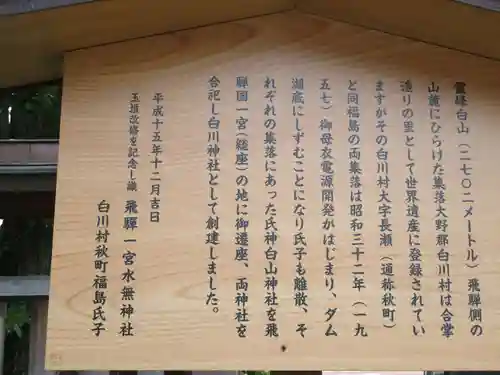 霊峰白山（二七〇二メートル）飛騨側の
山麓にひらけた集落大野郡白川村は合掌
造りの里として世界遺産に登録されてい
ますがその白川村大字長瀬（通称秋町）
と同福島の両集落は昭和三十二年（一九
五七）御母衣電源開発がはじまり、ダム
湖底にしずむことになり氏子も離散、そ
れぞれの集落にあった氏神白山神社を飛
騨国一宮（総座）の地に御遷座、両神社を
合祀し白川神社として創建しました。
平成十五年十二月吉日
玉垣改修を記念し識
飛騨一宮水無神社
白川村秋町福島氏子